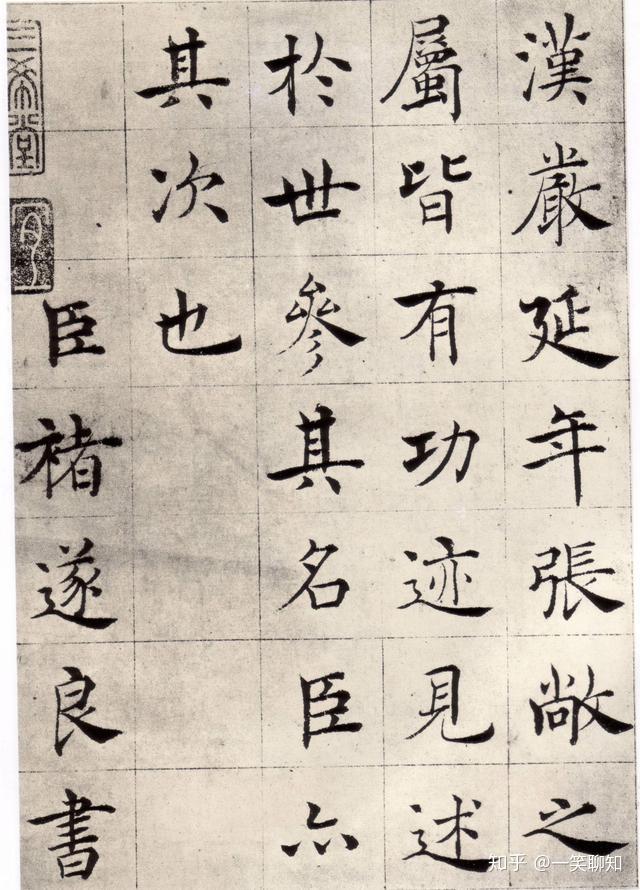 漢嚴延年張敞之
屬皆有功迹見述
於世參其名臣亦
其次也
臣褚遂良書
三希堂
知乎 @一笑聊知